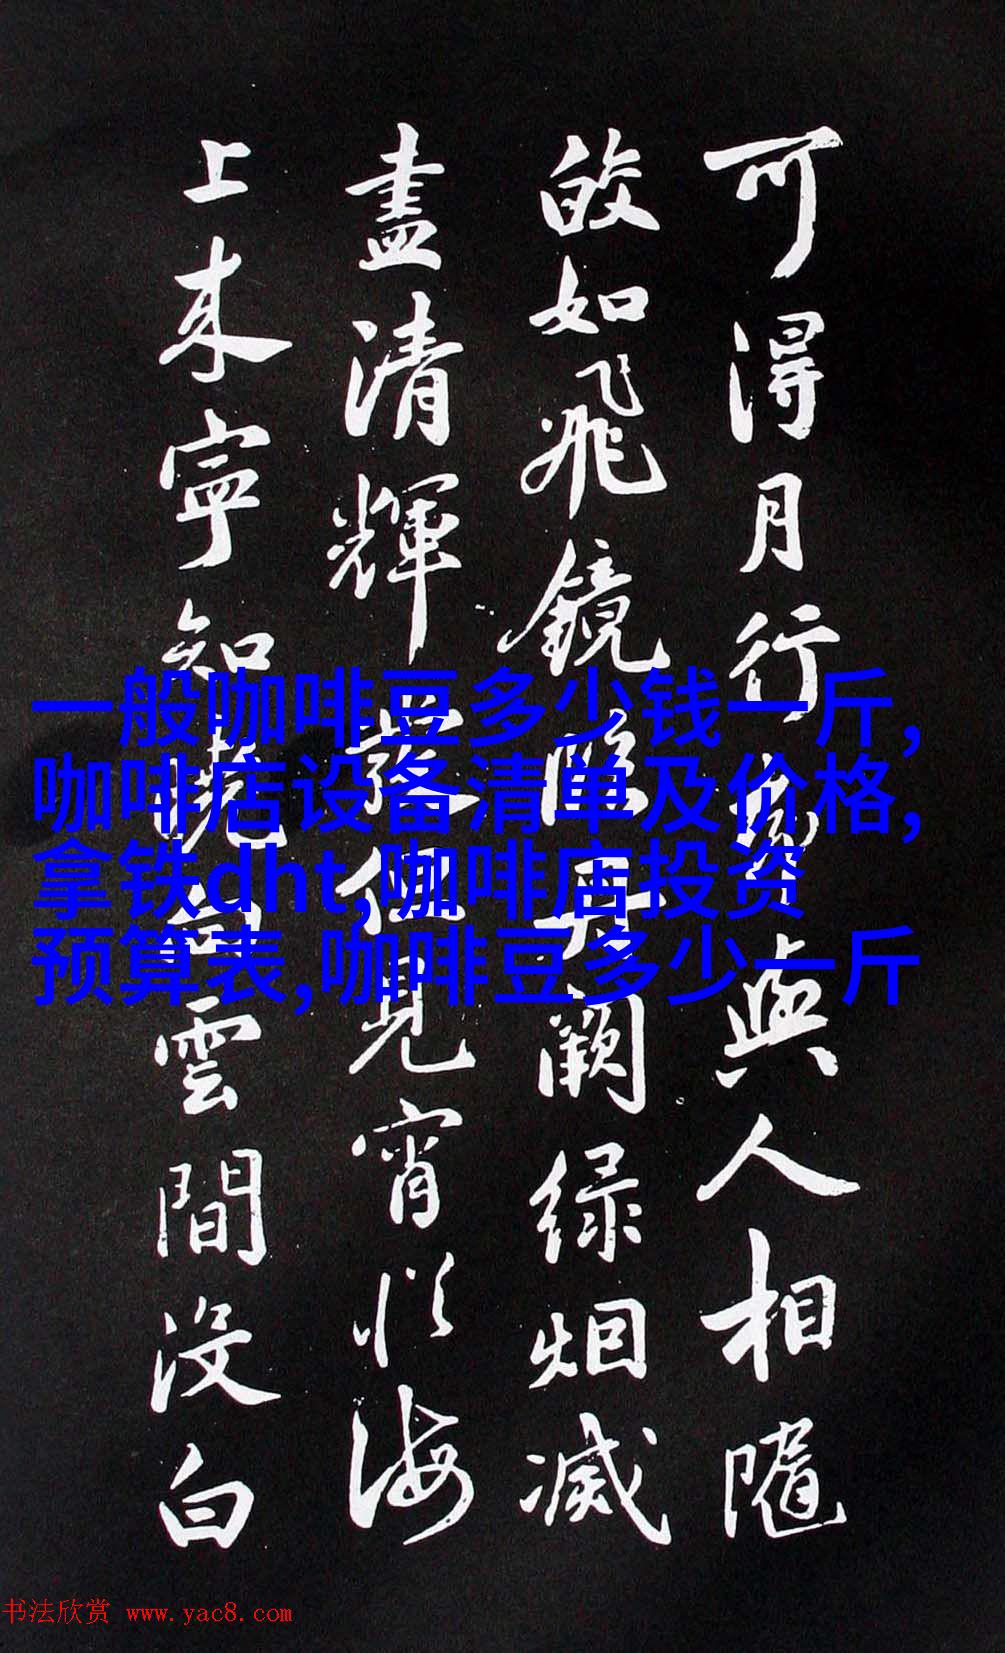 可得月行却與人相隨
皎如飛鏡臨丹闕綠烟滅
盡清輝發但見宵從海
上来寧知曉向雲間沒白
一般咖啡豆多少钱一斤,
咖啡店设备清单及价格,
拿铁dht,咖啡店投资
预算表,咖啡豆多少一斤
书法欣赏 www.yac8.com